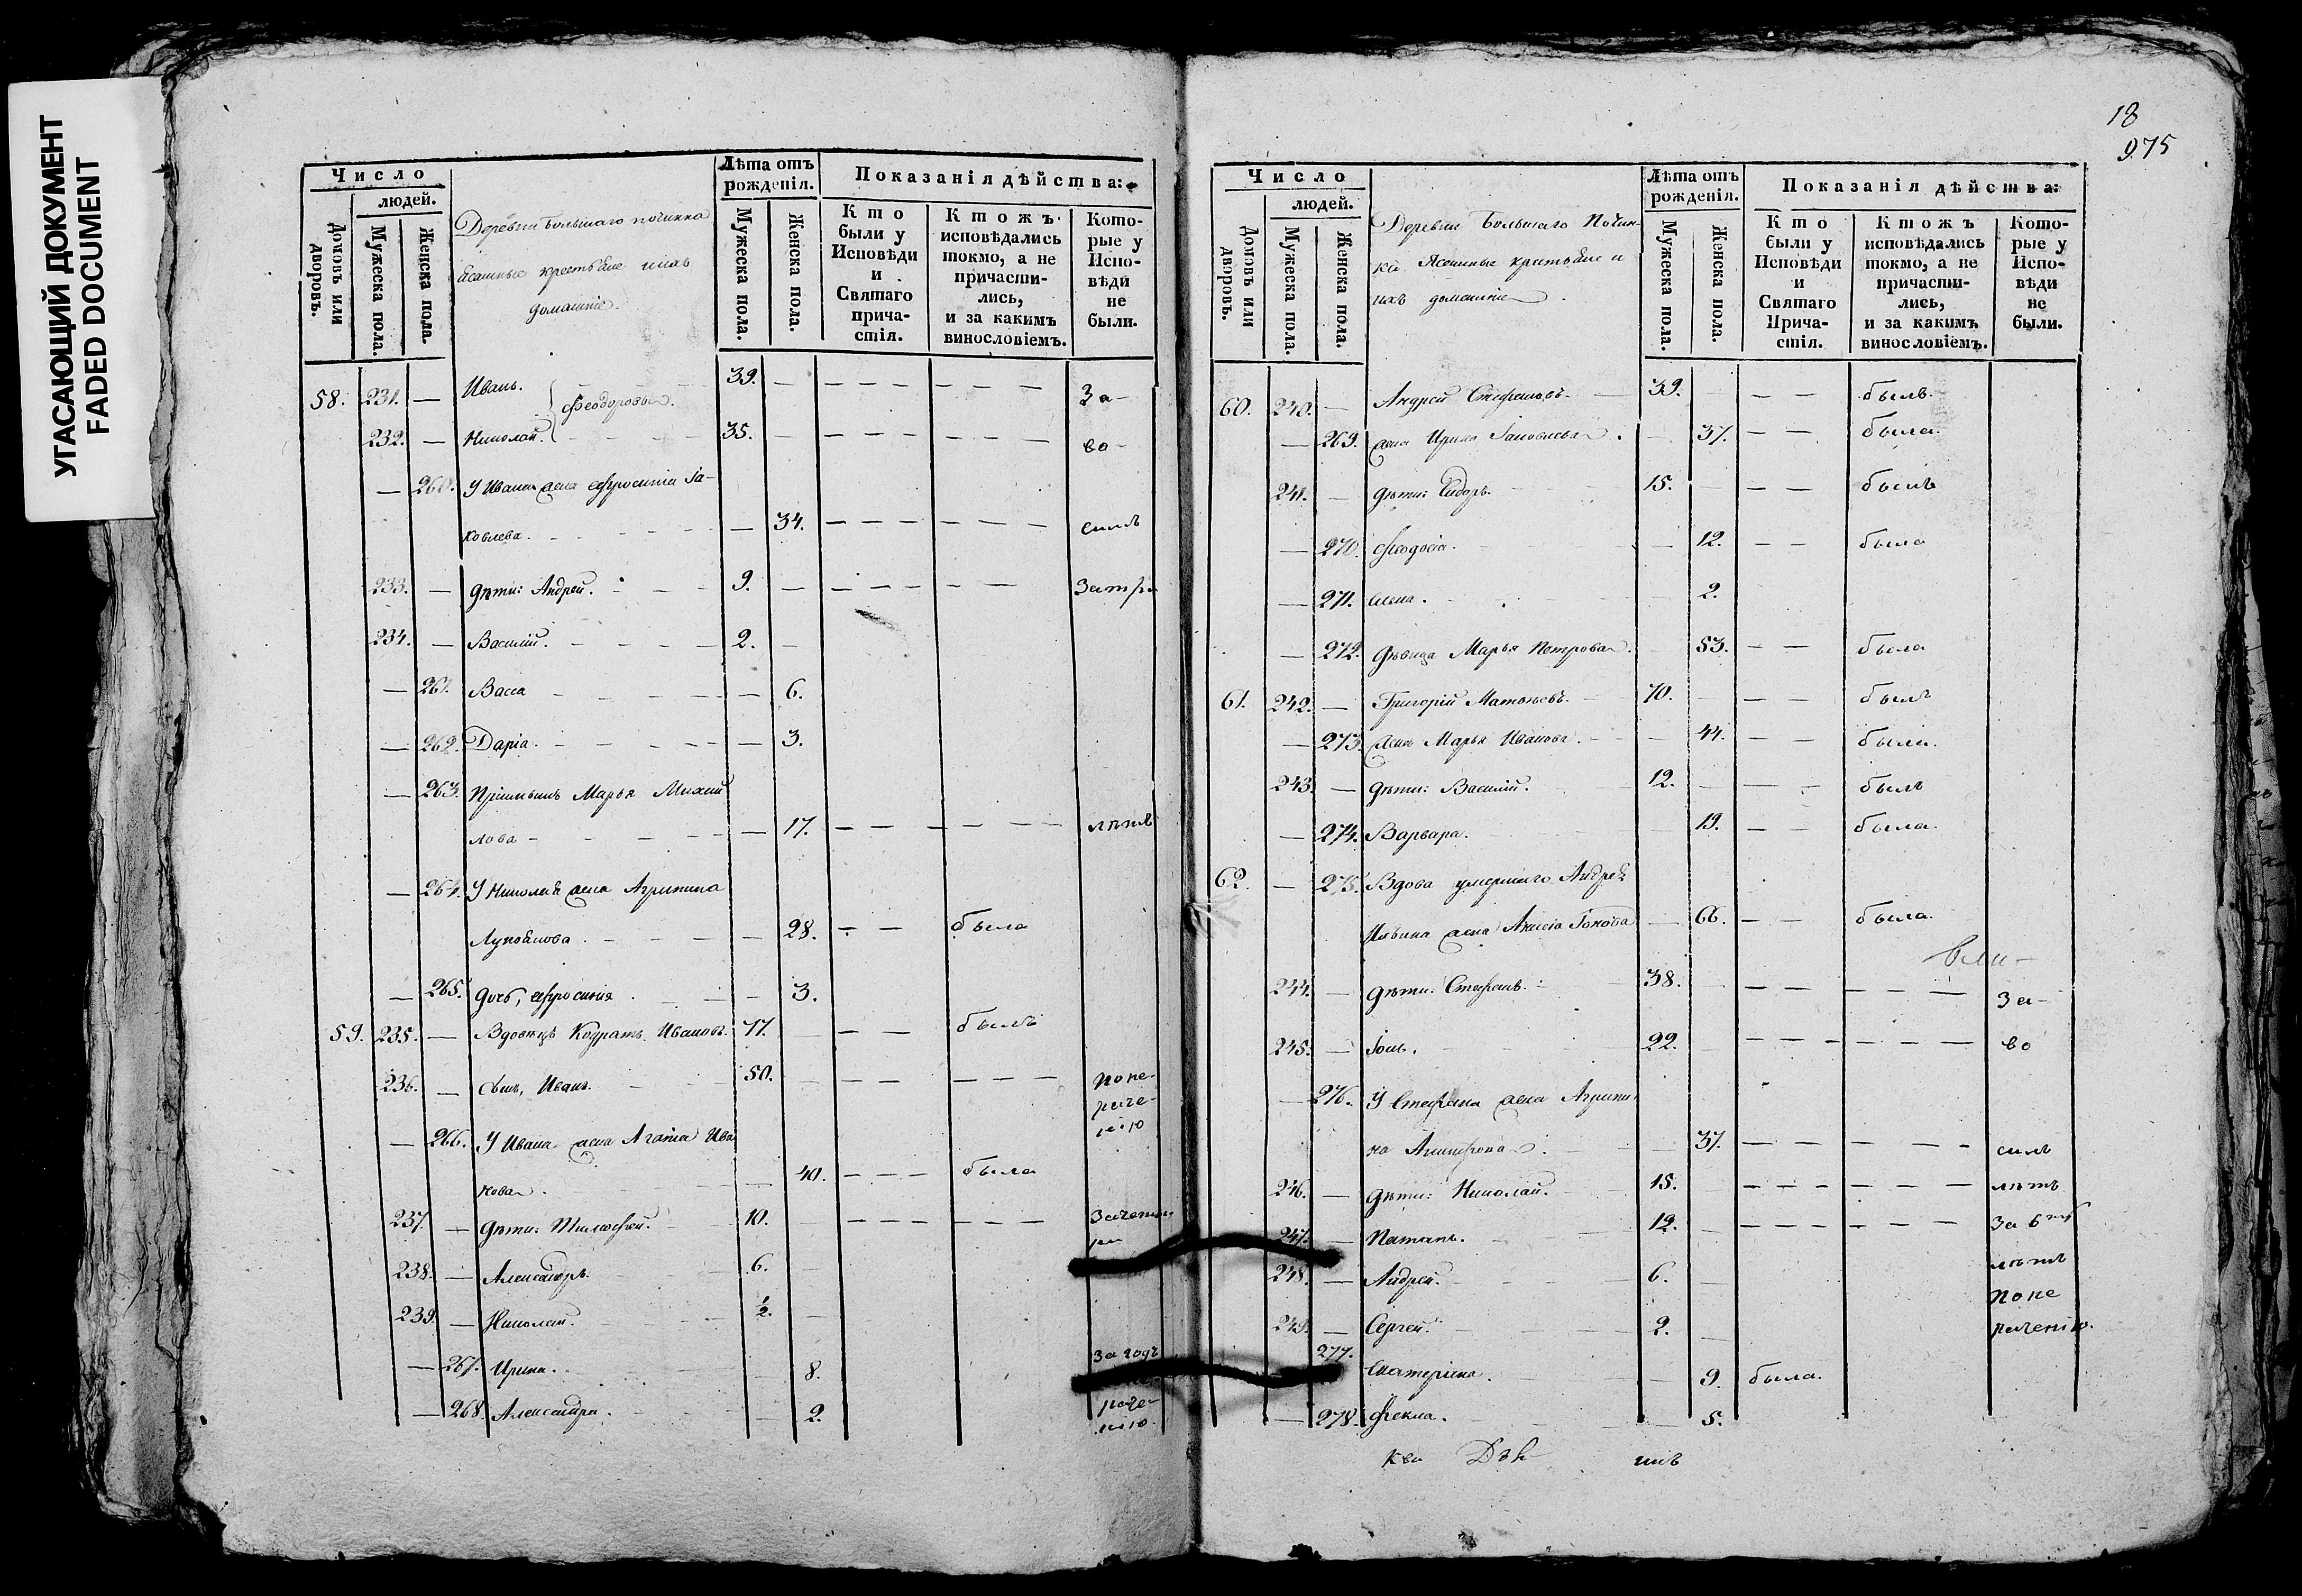 УГАСАЮЩИЙ ДОКУМЕНТ
FADED DOCUMENT
Число
людей.
Домовъ или дворовъ.
Мужеска пола.
Женска пола.
Деревни Большаго починка
крестьяне ихъ
домашніе.
Лѣта отъ рожденія.
Мужеска пола.
Женска пола.
Показанія дѣйства:
Кто были у Исповѣди и Святаго прича-стія.
Ктожъ исповѣдались токмо, а не причасти-лись, и за какимъ винословіемъ.
Кото-рые у Испо-вѣди не были.
58. 231. — Иванъ. 39. За-
Феодоровы.
232. — Николай. 35. во-
— 260. У Ивана жена Ефросинія Іа-
ковлева. — 34. симъ
233. — дѣти: Андрей. 9. —
234. — Василій. 2. —
— 261. Васса — 6.
— 262. Дарія. — 3.
— 263. Пріимышъ Марья Михай
лова — 17.
— 264. У Николая жена Агрипина
— 28. была
— 265. дочь, Ефросинія — 3.
59. 235. — Вдовецъ Кодратъ Ивановъ. 77. былъ
236. — сынъ, Иванъ. 50. по не-
раче-
нію
— 266. У Ивана жена Агаѳіа Ива
нова. — 40. была
237. — дѣти: Тимофей. 10.
238. — Александръ. 6.
239. — Николай. ½.
— 267. Ирина. 8. За годъ
— 268. Александра. 2. раче-
нію.
18
975
Число
людей.
Домовъ или дворовъ.
Мужеска пола.
Женска пола.
Деревни Большаго Почин-
ка Ясашные крестьяне и
ихъ домашніе.
Лѣта отъ рожденія.
Мужеска пола.
Женска пола.
Показанія дѣйства:
Кто были у Исповѣди и Святаго Прича-стія.
Ктожъ исповѣдались токмо, а не причасти-лись, и за какимъ винословіемъ.
Кото-рые у Испо-вѣди не были.
60. 240. — Андрей Стефановъ. 39. былъ.
— 269. жена Ирина Іаковлева. 37. была.
241. — дѣти: Сидоръ. 15. былъ
— 270. Феодосіа. 12. была
— 271. Елена. 2.
— 272. дѣвица Марья Петрова. 53. была
61. 242. — Григорій Матвѣевъ. 70. былъ
— 273. жена Марья Иванова. 44. была.
243. — дѣти: Василій. 12. былъ
— 274. Варвара. 19. была.
62. — 275. Вдова умершаго Андрея
Ильина жена Анисіа Іонова 66. была.
244. — дѣти: Стефанъ. 38. За-
245. — Іоилъ. 22. во
— 276. У Стефана жена Агрипи
на 37. симъ
246. — дѣти: Николай. 15. лѣтъ
247. — Потапъ. 12. За 6
248. — Андрей. 6. лѣтъ
по не
249. — Сергей. 2. раченію.
277. Екатерина. 9. была.
— 278. Фекла. 5.